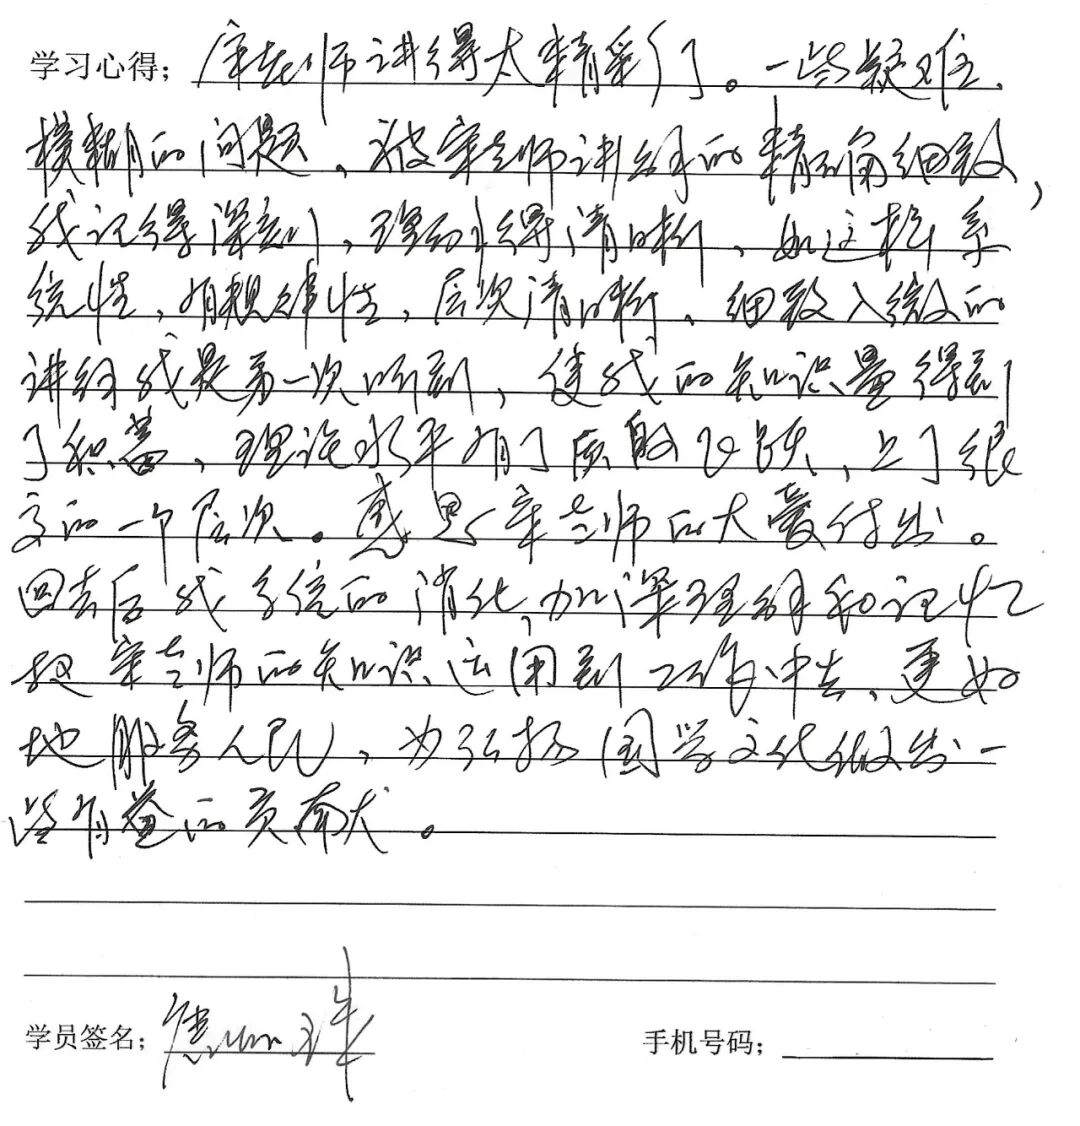 学习心得：宋老师讲得太精彩了。一些疑难、
模糊的问题、被宋老师讲解的精确细致，
我记得深刻、理解得清晰、如这样系
统性、有规律性、层次清晰、细致入微的
讲解我是第一次听到，使我的知识量得到
了积蓄、理论水平有了质的飞跃、上了很
高的一个层次。感恩宋老师的大爱付出。
回去后我系统的消化,加深理解和记忆
把宋老师的知识运用到工作中去、更好
地服务人民、为弘扬国学文化做出一
些有益的贡献。
学员签名：
手机号码：